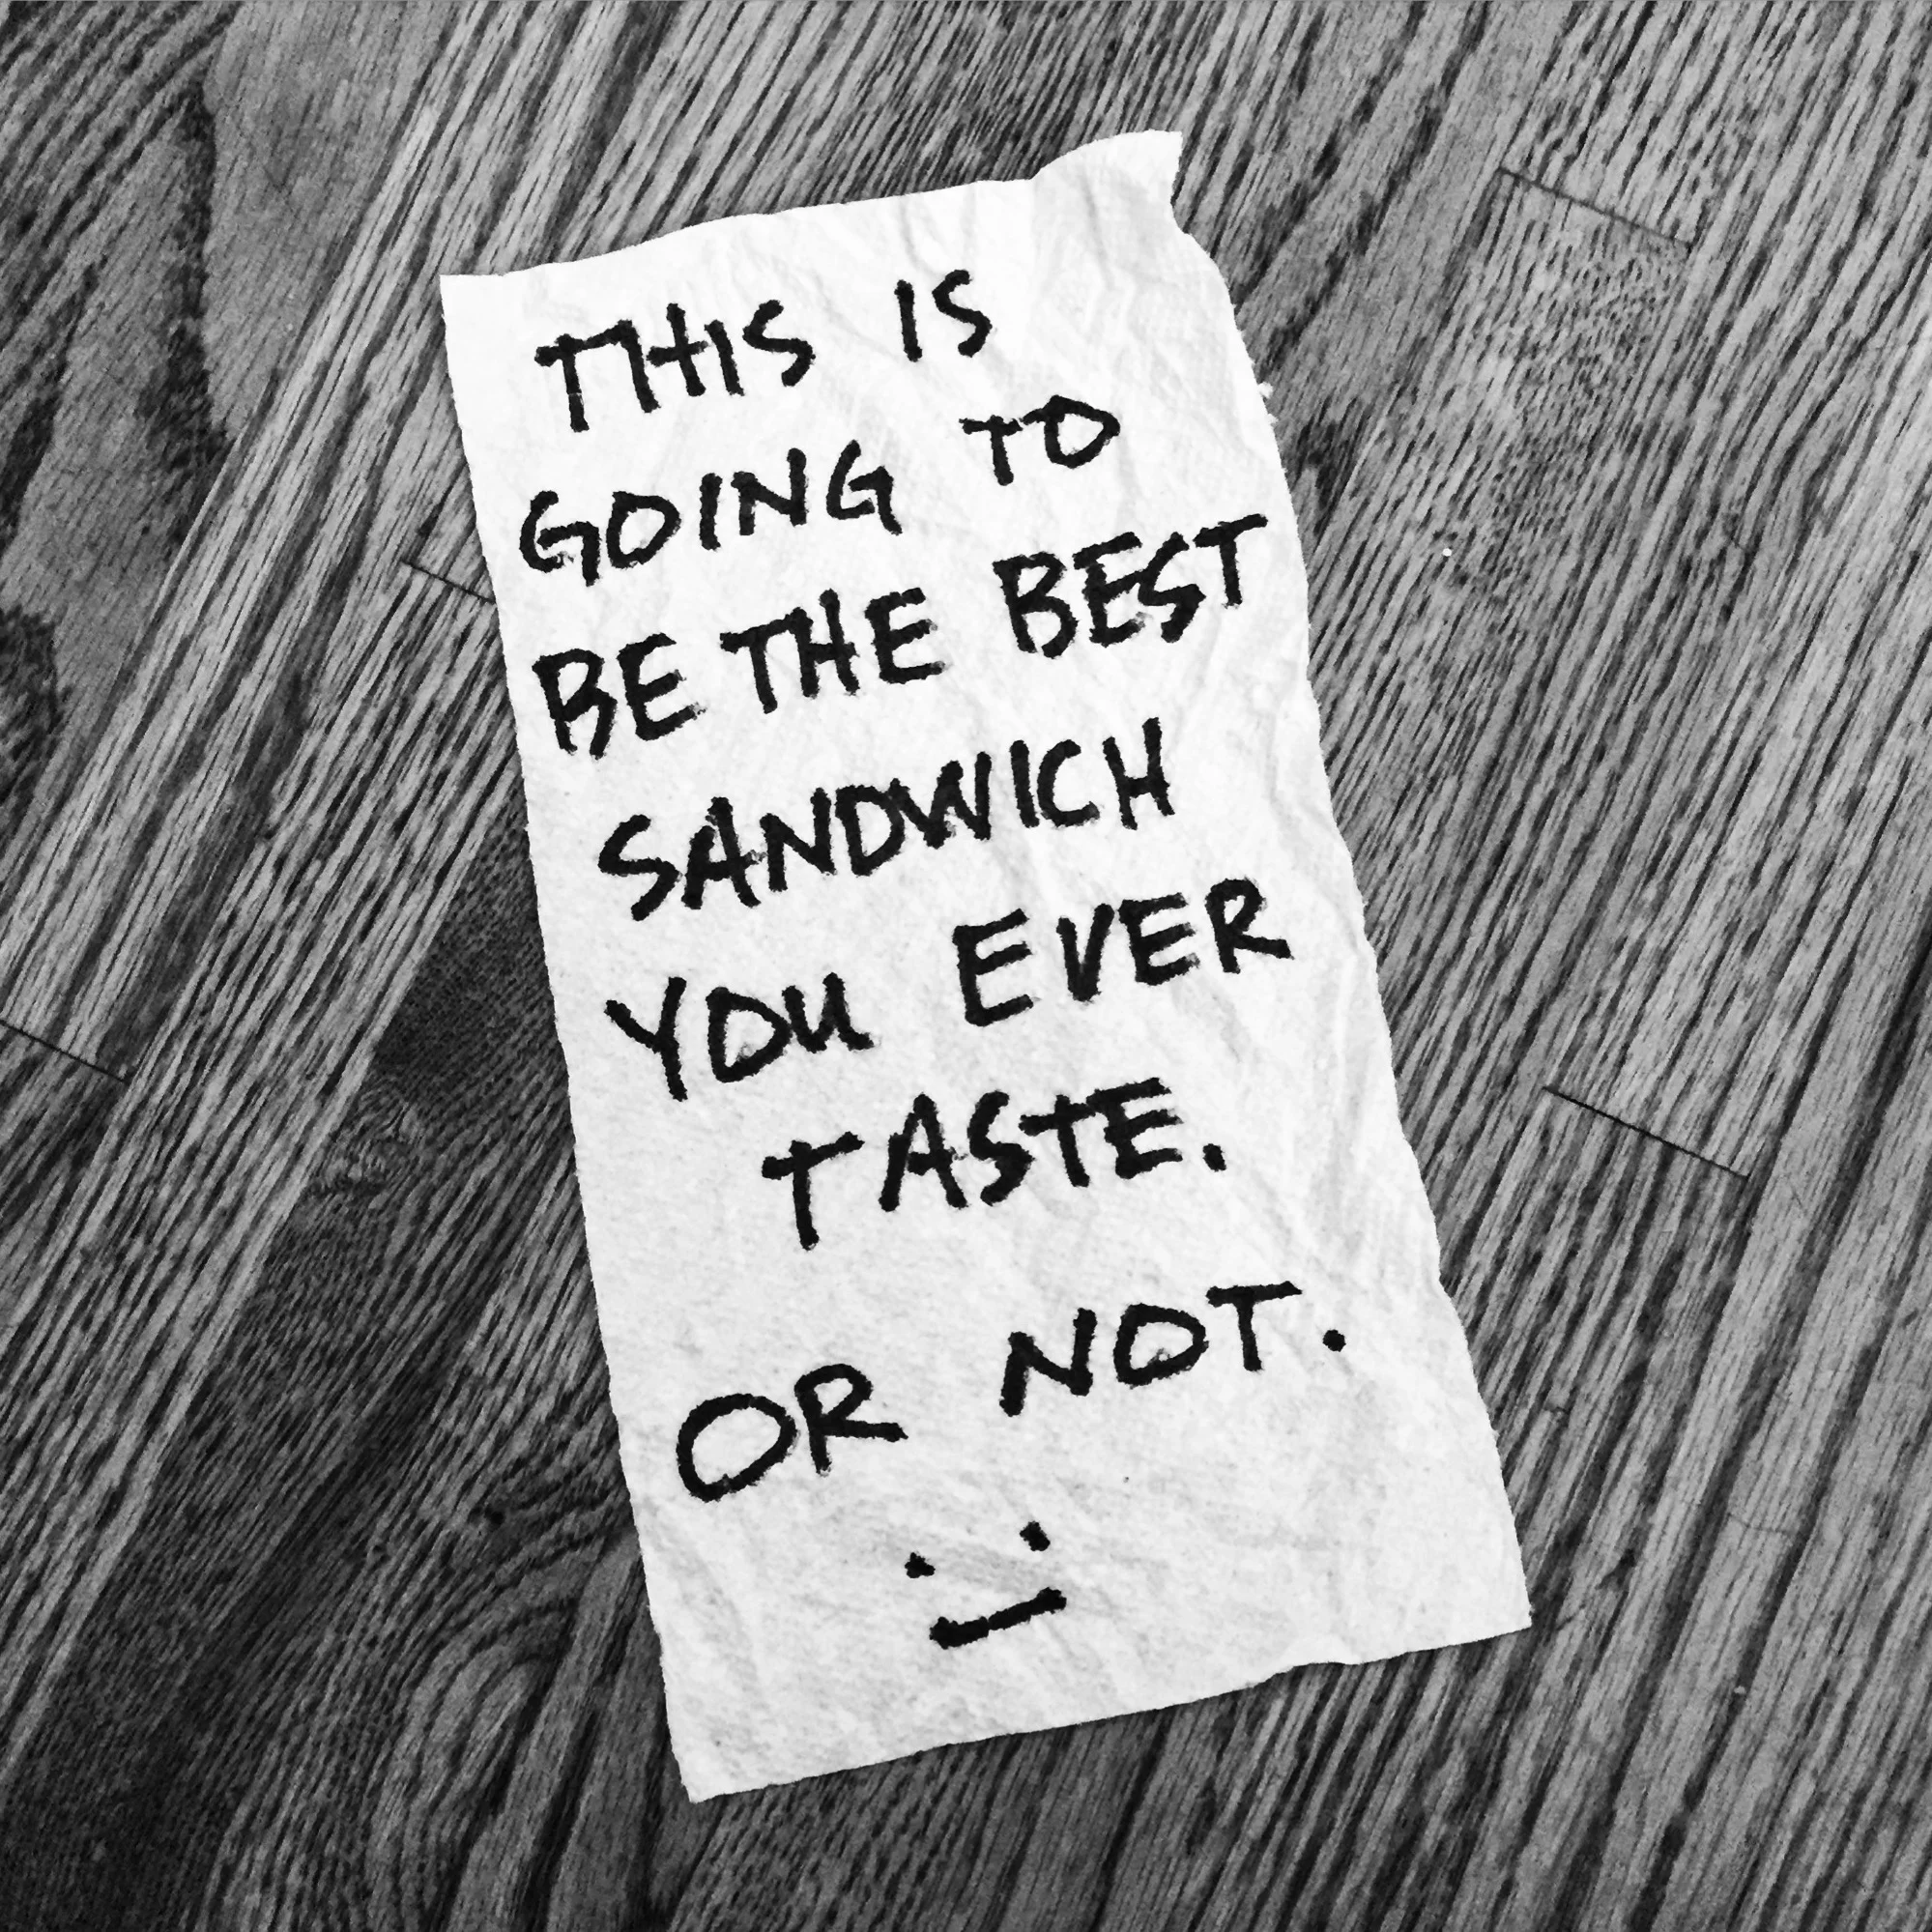 THIS IS
GOING TO
BE THE BEST
SANDWICH
YOU EVER
TASTE.
OR NOT.